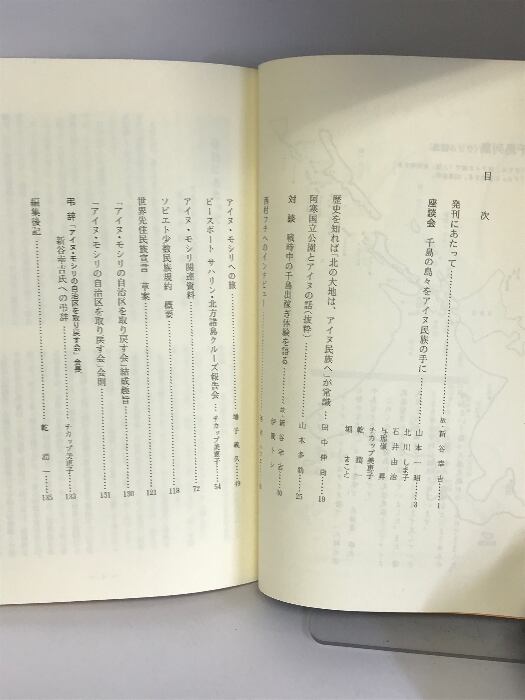 目次
発刊にあたって……故・新谷幸吉……1
座談会 千島の島々をアイヌ民族の手に……山本一昭……3
北川しま子
石井由治
与那嶺昇
チカップ美恵子
乾潤一
堀まこと
歴史を知れば「北の大地は、アイヌ民族へ」が常識……田中伸尚……19
阿寒国立公園とアイヌの話(抜粋)……山本多助……25
対談 戦時中の千島出稼ぎ体験を語る……故・新谷幸吉……30
伊賀トシ
西村フチへのインタビュー
アイヌ・モシリへの旅……49
ピースボート サハリン・北方諸島クルーズ報告会……チカップ美恵子……54
アイヌ・モシリ関連資料……72
ソビエト少数民族規約 概要……118
世界先住民族宣言 草案……121
「アイヌ・モシリの自治区を取り戻す会」結成趣旨……130
「アイヌ・モシリの自治区を取り戻す会」会則……131
弔辞「アイヌ・モシリの自治区を取り戻す会」会長
新谷幸吉氏への弔辞……チカップ美恵子……133
編集後記……乾潤一……135